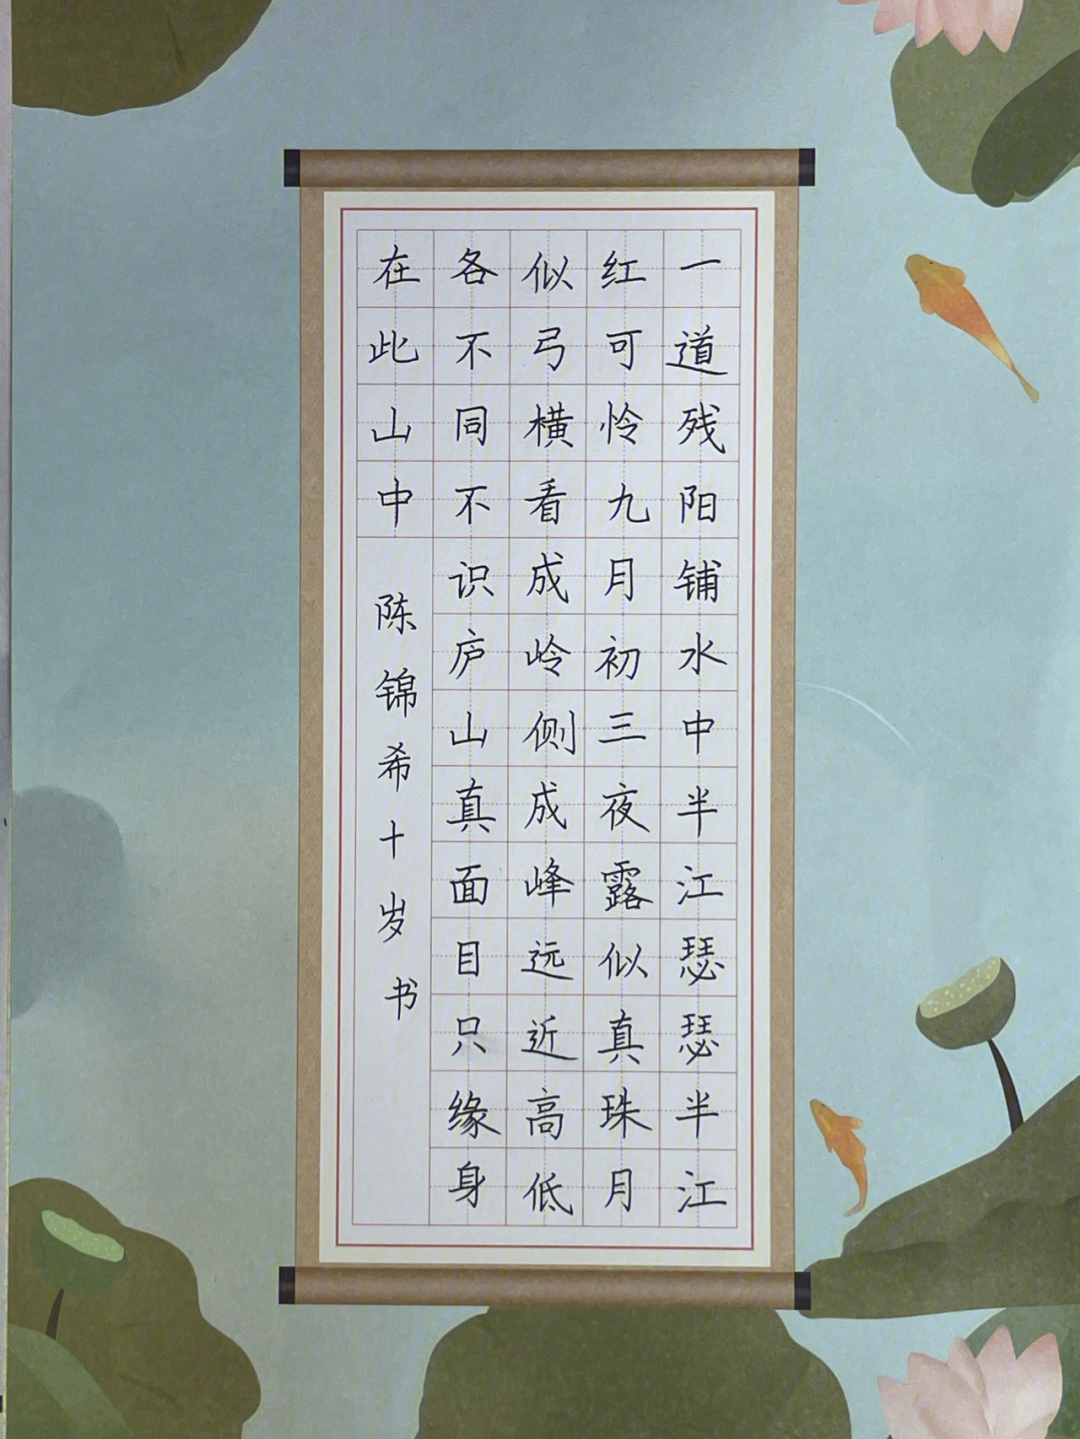 一道残阳铺水中半江瑟瑟半江
红可怜九月初三夜露似真珠月
似弓横看成岭侧成峰远近高低
各不同不识庐山真面目只缘身
在此山中
陈锦希十岁书